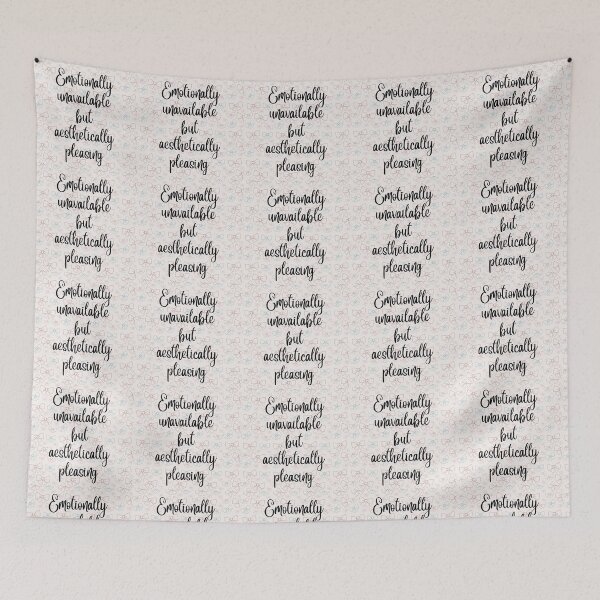 Emotionally
unavailable
but
aesthetically
pleasing
Emotionally
unavailable
but
aesthetically
pleasing
Emotionally
unavailable
but
aesthetically
pleasing
Emotionally
unavailable
but
aesthetically
pleasing
Emotionally
unavailable
but
aesthetically
pleasing
Emotionally
unavailable
but
aesthetically
pleasing
Emotionally
unavailable
but
aesthetically
pleasing
Emotionally
unavailable
but
aesthetically
pleasing
Emotionally
unavailable
but
aesthetically
pleasing
Emotionally
unavailable
but
aesthetically
pleasing
Emotionally
unavailable
but
aesthetically
pleasing
Emotionally
unavailable
but
aesthetically
pleasing
Emotionally
unavailable
but
aesthetically
pleasing
Emotionally
unavailable
but
aesthetically
pleasing
Emotionally
unavailable
but
aesthetically
pleasing
Emotionally
unavailable
but
aesthetically
pleasing
Emotionally
unavailable
but
aesthetically
pleasing
Emotionally
unavailable
but
aesthetically
pleasing
Emotionally
unavailable
but
aesthetically
pleasing
Emotionally
unavailable
but
aesthetically
pleasing
Emotionally
Emotionally
Emotionally
Emotionally
Emotionally